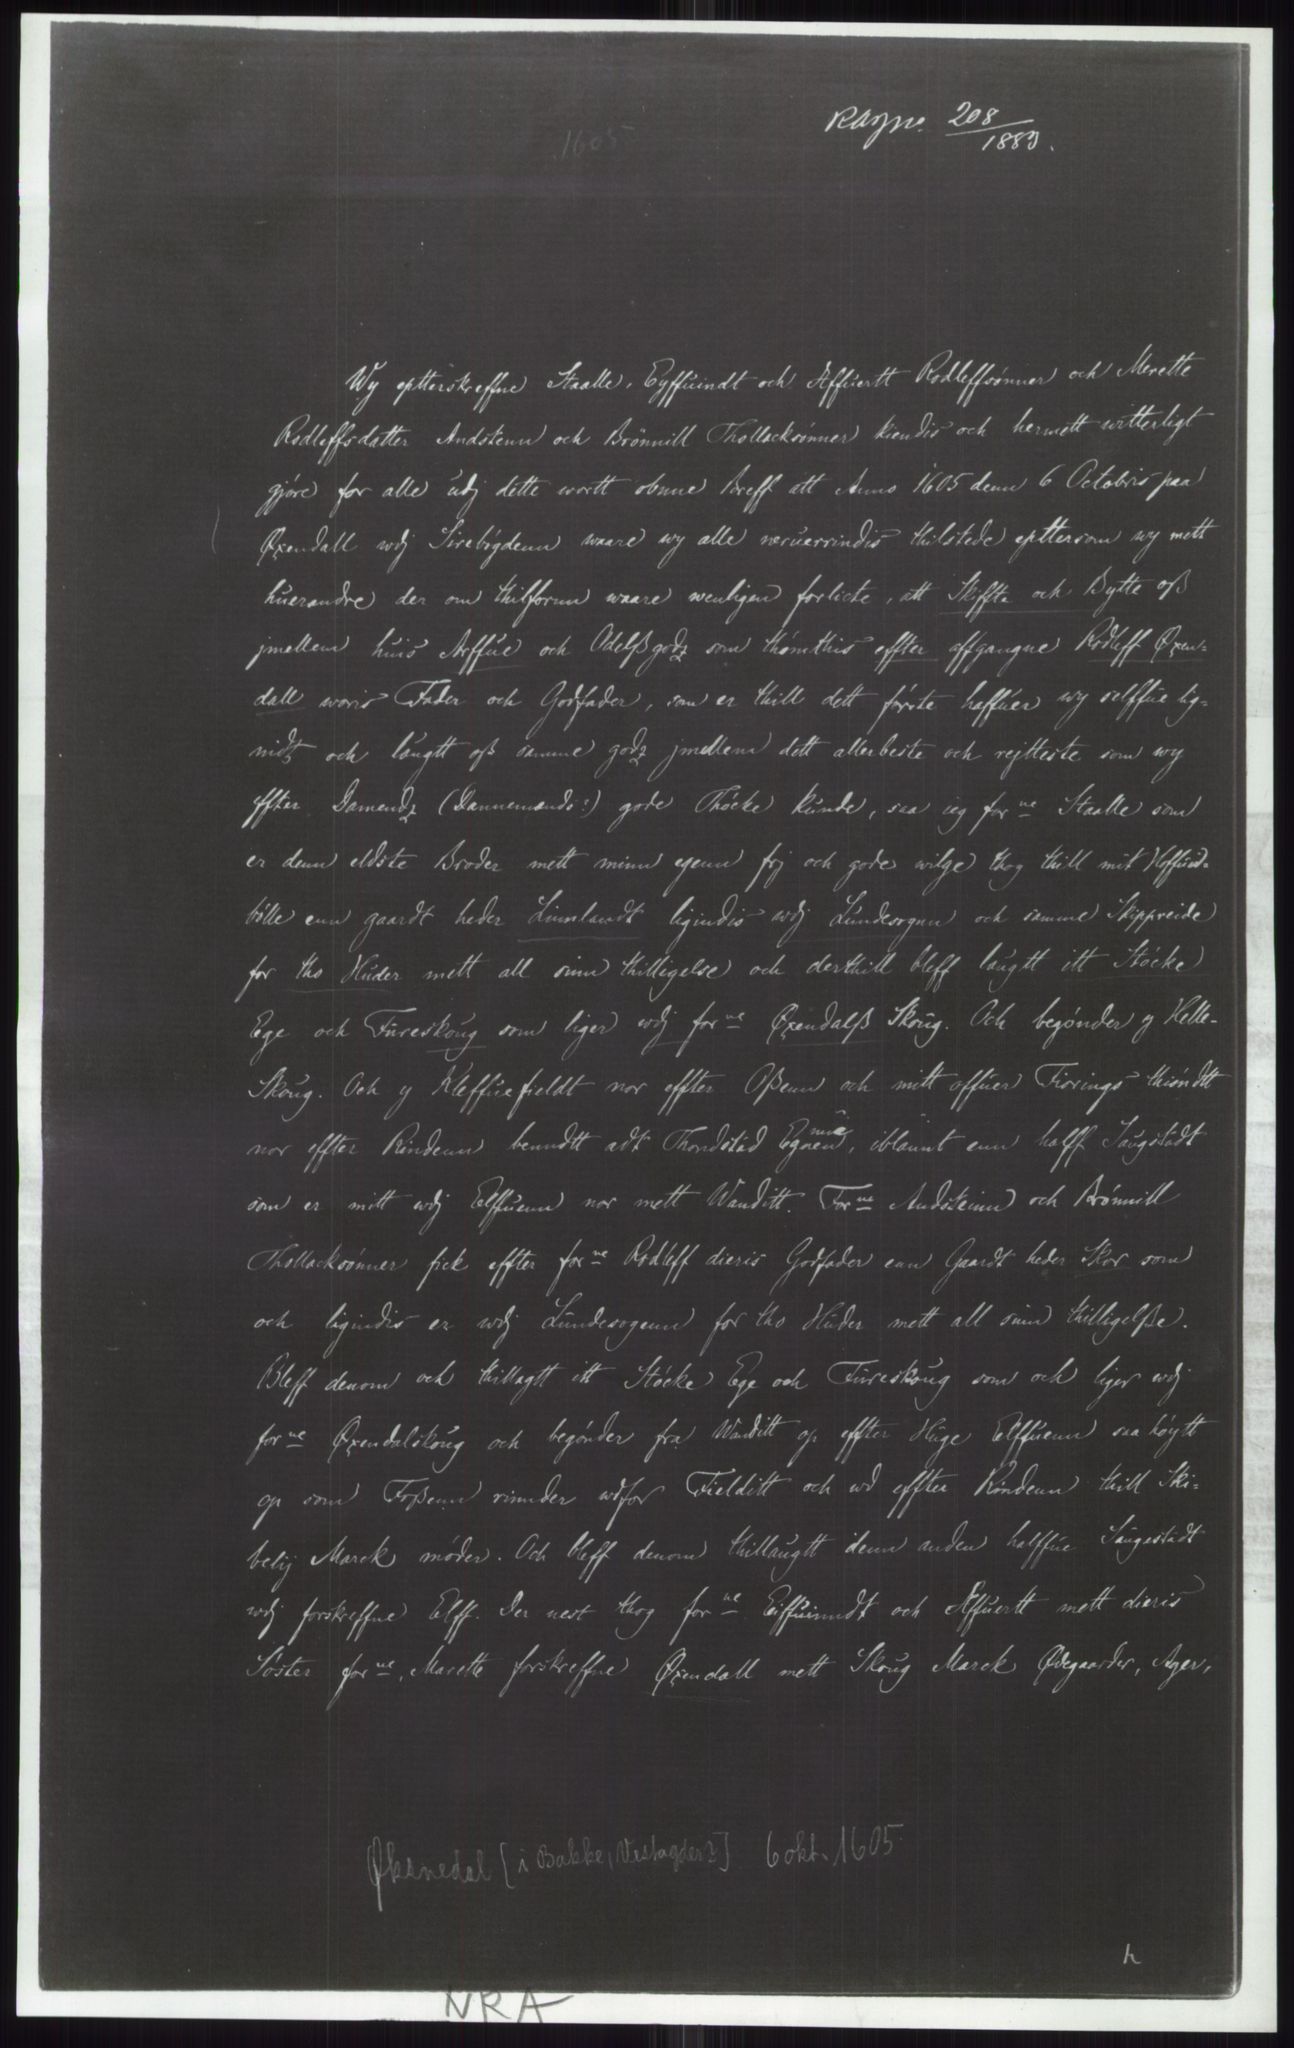 RAjno. 208/1883.
1605
Wy eptterskreffne Staalle, Eyffuindt och Affuertt Rodleffsønner och Merette
Rodleffsdatter Andstenn och Brönnill Thollacksønner kiendis och hermett witterligt
gjøre for alle udj dette wortt obnne Breff att Anno 1605 denn 6 Octobris paa
Øxendall wdj Sirebógdenn waare wy alle neruerrindis thilstede epttersom wy mett
huerandre der om thilfornn waare wenligen forlicte, att Skiffte och Bytte oß
jmellem huis Arffue och Odelßgodz som thómthis effter affgangne Rodleff Øxen-
dall woris Fader och Godfader, som er thill dett fórste haffuer wy selffue lig-
nidt och laugtt oß samme godz jmellem dett allerbeste och rejtteste som wy
effter Damendz (Dannemands?) gode Thócke kunde, saa ieg forne Staalle som
er denn eldste Broder mett minn egenn frj och gode wilge thog thill mit Hoffued-
bólle enn gaardt heder Linnlandt ligindis wdj Lundesognn och samme Skippreide
for tho Huder mett all sinn thilligelse och derthill bleff laugtt itt Stócke
Ege och Fureskoug som liger wdj forne Øxendalß Skoug. Och begónder y Helle-
Skoug. Och y Kleffuefieldt nor effter Oßenn och mitt offuer Tiorings thióndtt
nor effter Rindenn benndtt adt Thondstad Egnene, iblannt enn halff Saugstadt
som er mitt wdj Elffuenn nor mett Wanditt. Forne Andsteinn och Brónnill
Thollacksønner fick effter forne Rodleff dieris Godfader enn Gaardt heder Skor som
och ligindis er wdj Lundesogenn for tho Huder mett all sinn thilligelße.
Bleff denom och thillagtt itt Stócke Ege och Fureskoug som och liger wdj
forne Øxendalskoug och begónder fra Wanditt op effter Huge Elffuenn saa hóytt
op som Foßenn rinnder wdfor Fielditt och wd effter Rindenn thill Ski-
belij Marck móder. Och bleff denom thillaugtt denn anden halffue Saugestadt
wdj forskreffne Elff. Der nest thog forne Eiffuinndt och Affuertt mett dieris
Sóster forne, Marette forskreffne Øxendall mett Skoug Marck Ødegaarder, Ager,
Øksnedal [i Bakke, Vestagder?] 6 okt. 1605
h
NRA